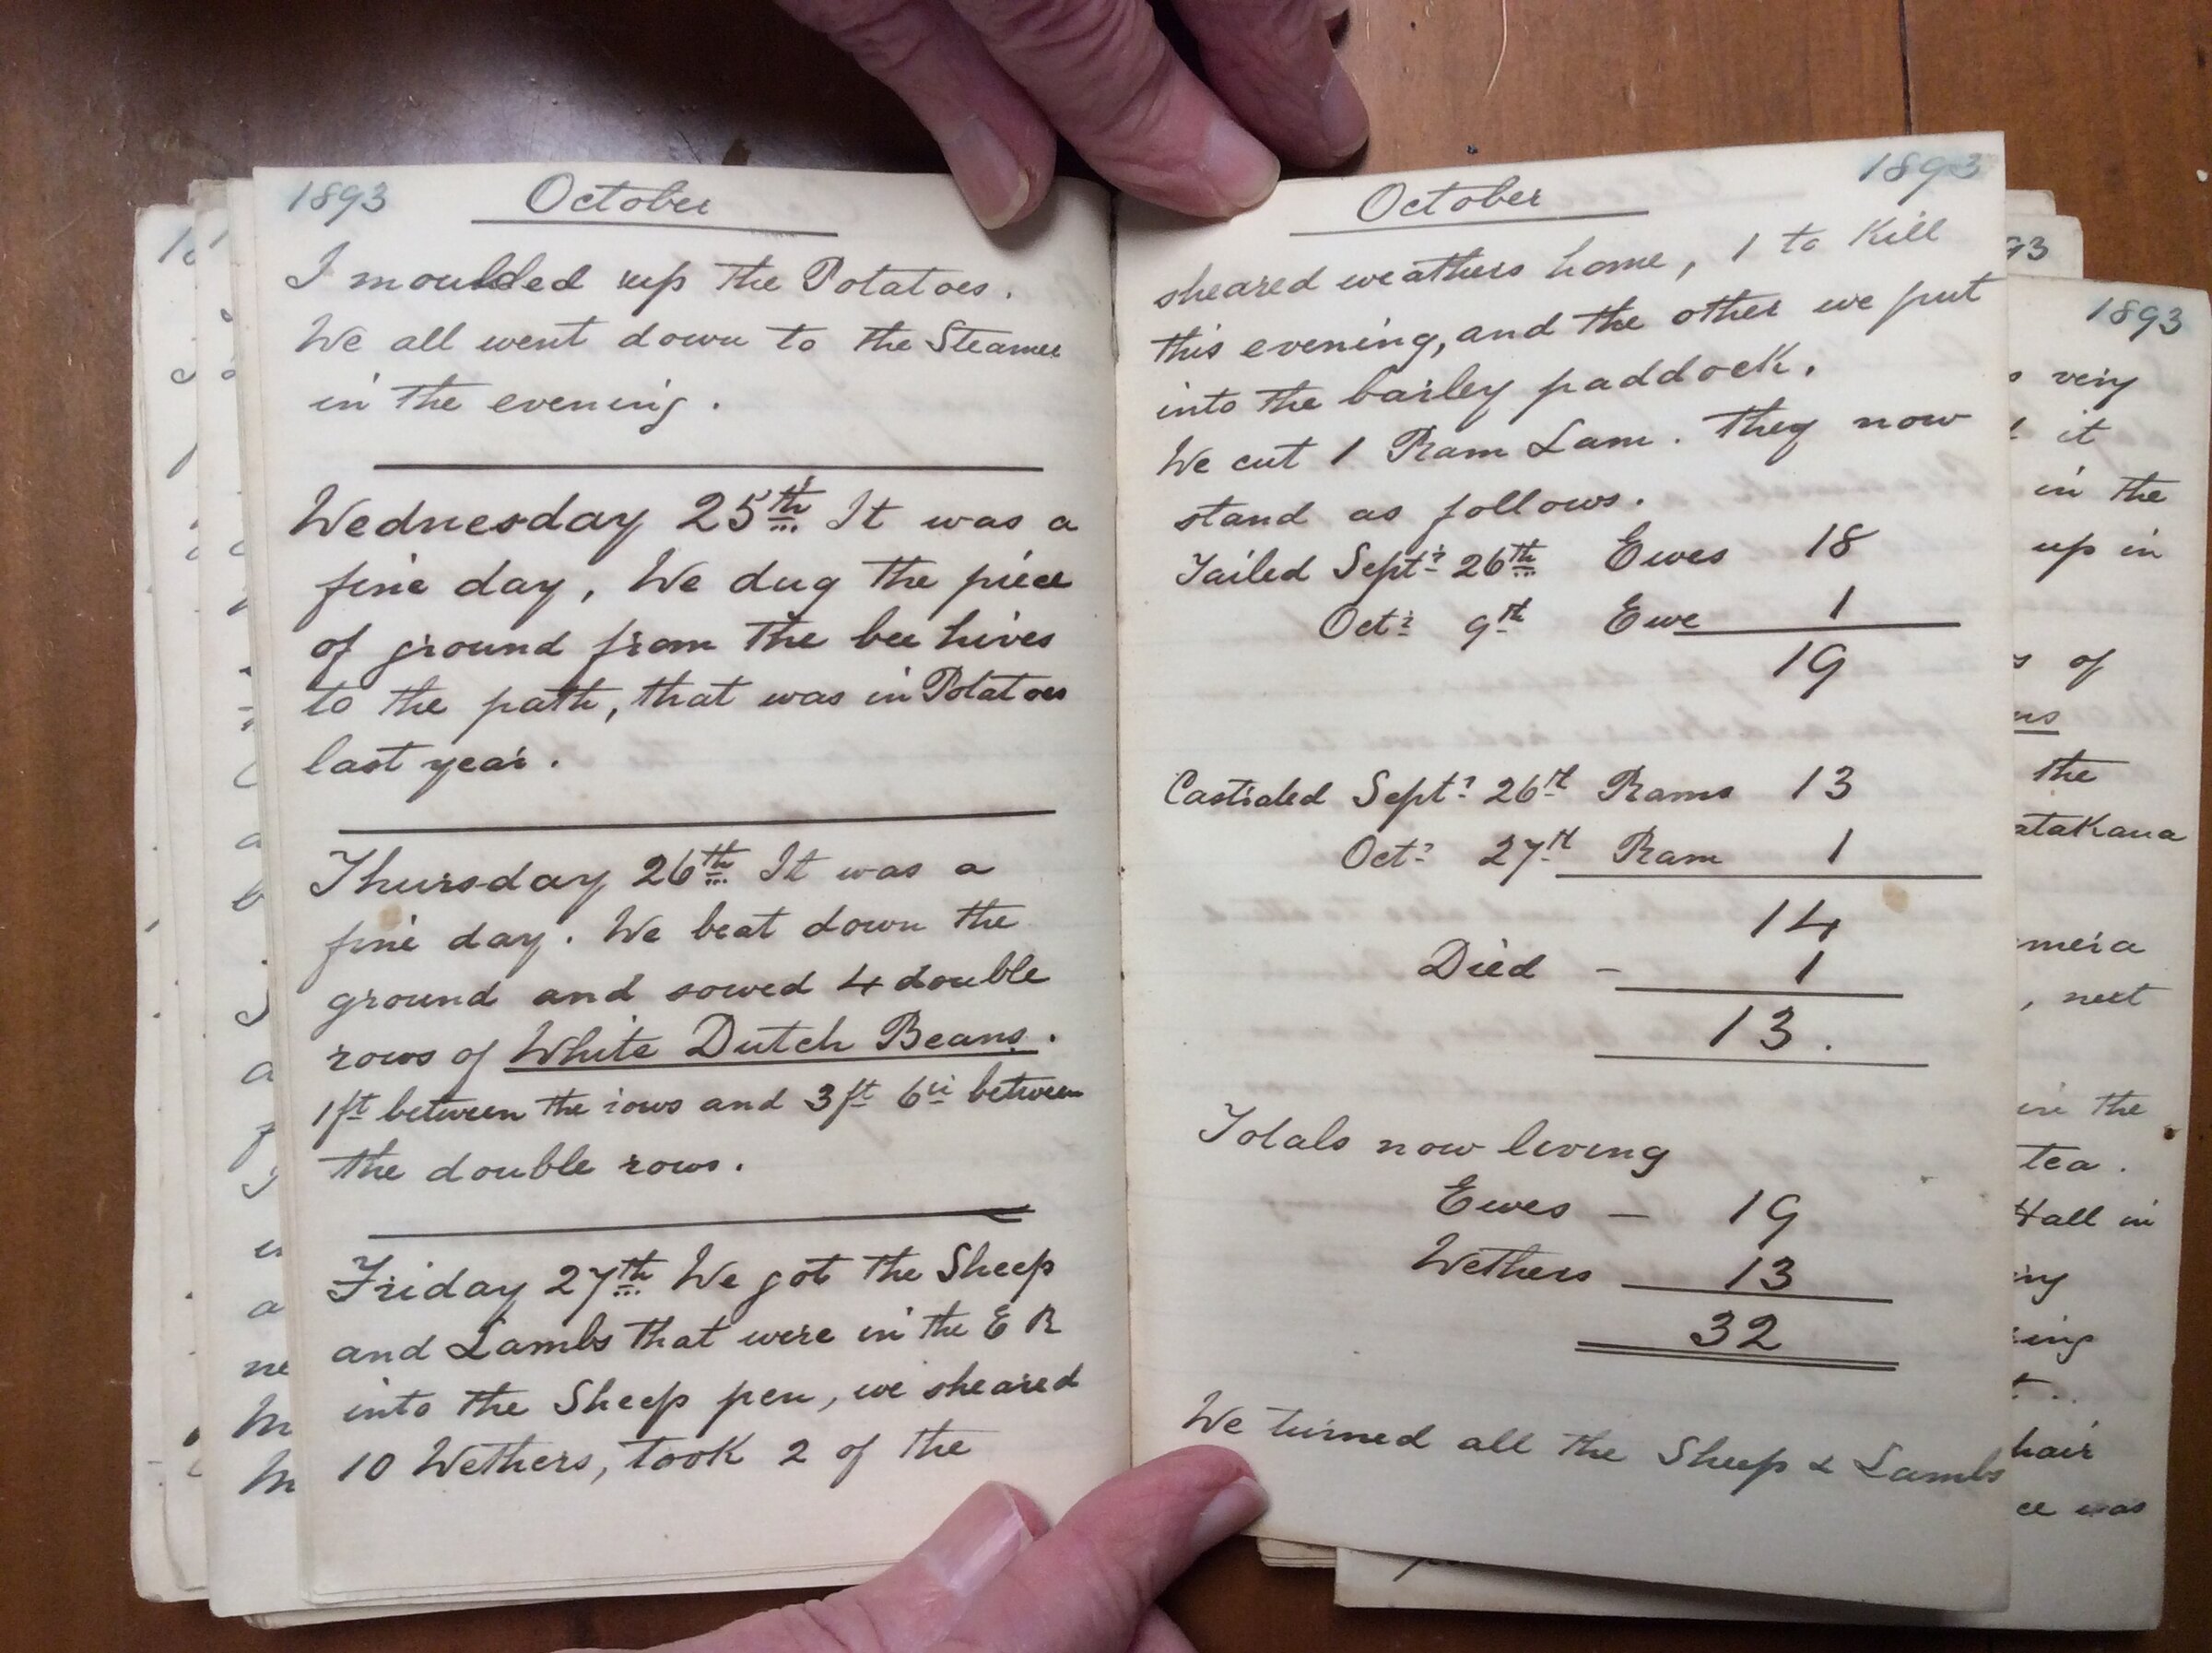 1893 October
I moulded up the Potatoes.
We all went down to the Steamer
in the evening.
Wednesday 25th It was a
fine day, We dug the piece
of ground from the bee hives
to the path, that was in Potatoes
last year.
Thursday 26th It was a
fine day. We beat down the
ground and sowed 4 double
rows of White Dutch Beans.
1ft between the rows and 3ft 6in between
the double rows.
Friday 27th We got the Sheep
and Lambs that were in the E R
into the Sheep pen, we sheared
10 Wethers, took 2 of the
October 1893
sheared weathers home, 1 to Kill
this evening, and the other we put
into the barley paddock.
We cut 1 Ram Lam. They now
stand as follows.
Tailed Septr 26th Ewes 18
Octr 9th Ewe 1
19
Castraled Septr 26th Rams 13
Octr 27th Ram 1
14
Died - 1
13.
Totals now living
Ewes - 19
Wethers 13
32
We turned all the Sheep & Lambs
93
1893
very
it
in the
up in
of
the
atakana
, next
in the
tea.
Hall in
hair
was